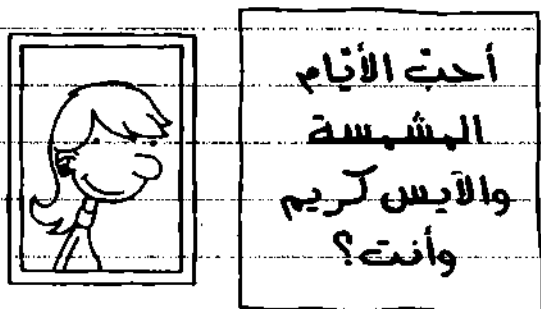 أحبّ الأيّام
المشمسة
والآيس كريم
وأنت؟